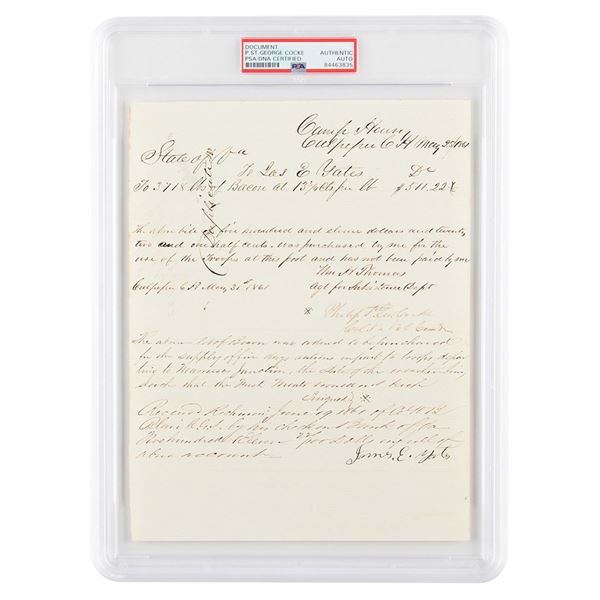 DOCUMENT
P. ST. GEORGE COCKE
PSA/DNA CERTIFIED
AUTHENTIC
AUTO
84463635
PSA
Camp Henry
Culpeper C H May 23 1861
State of Va
To Jas E Yates Dr
To 3718 lbs of Bacon at 13¾ cts per lb $511.22½
The above bill of five hundred and eleven dollars and twenty
two and one half cents. Was purchased by me for the
use of the Troops at this post and has not been paid by me
Wm H Thomas
Culpeper C H May 31st 1861
agt for Subsistence Dept
Philip St Geo Cocke
Col
The above of Bacon was ordered to be purchased
for the supply of five days rations to troops
to Manassas Junction, the state of the weather being
such that the Fresh Meats would not keep
(Signed) *
Received Richmond June 19 1861 of
by his check on Bank of Va
Five hundred Eleven 22/100 of
above account
James. E. Yates